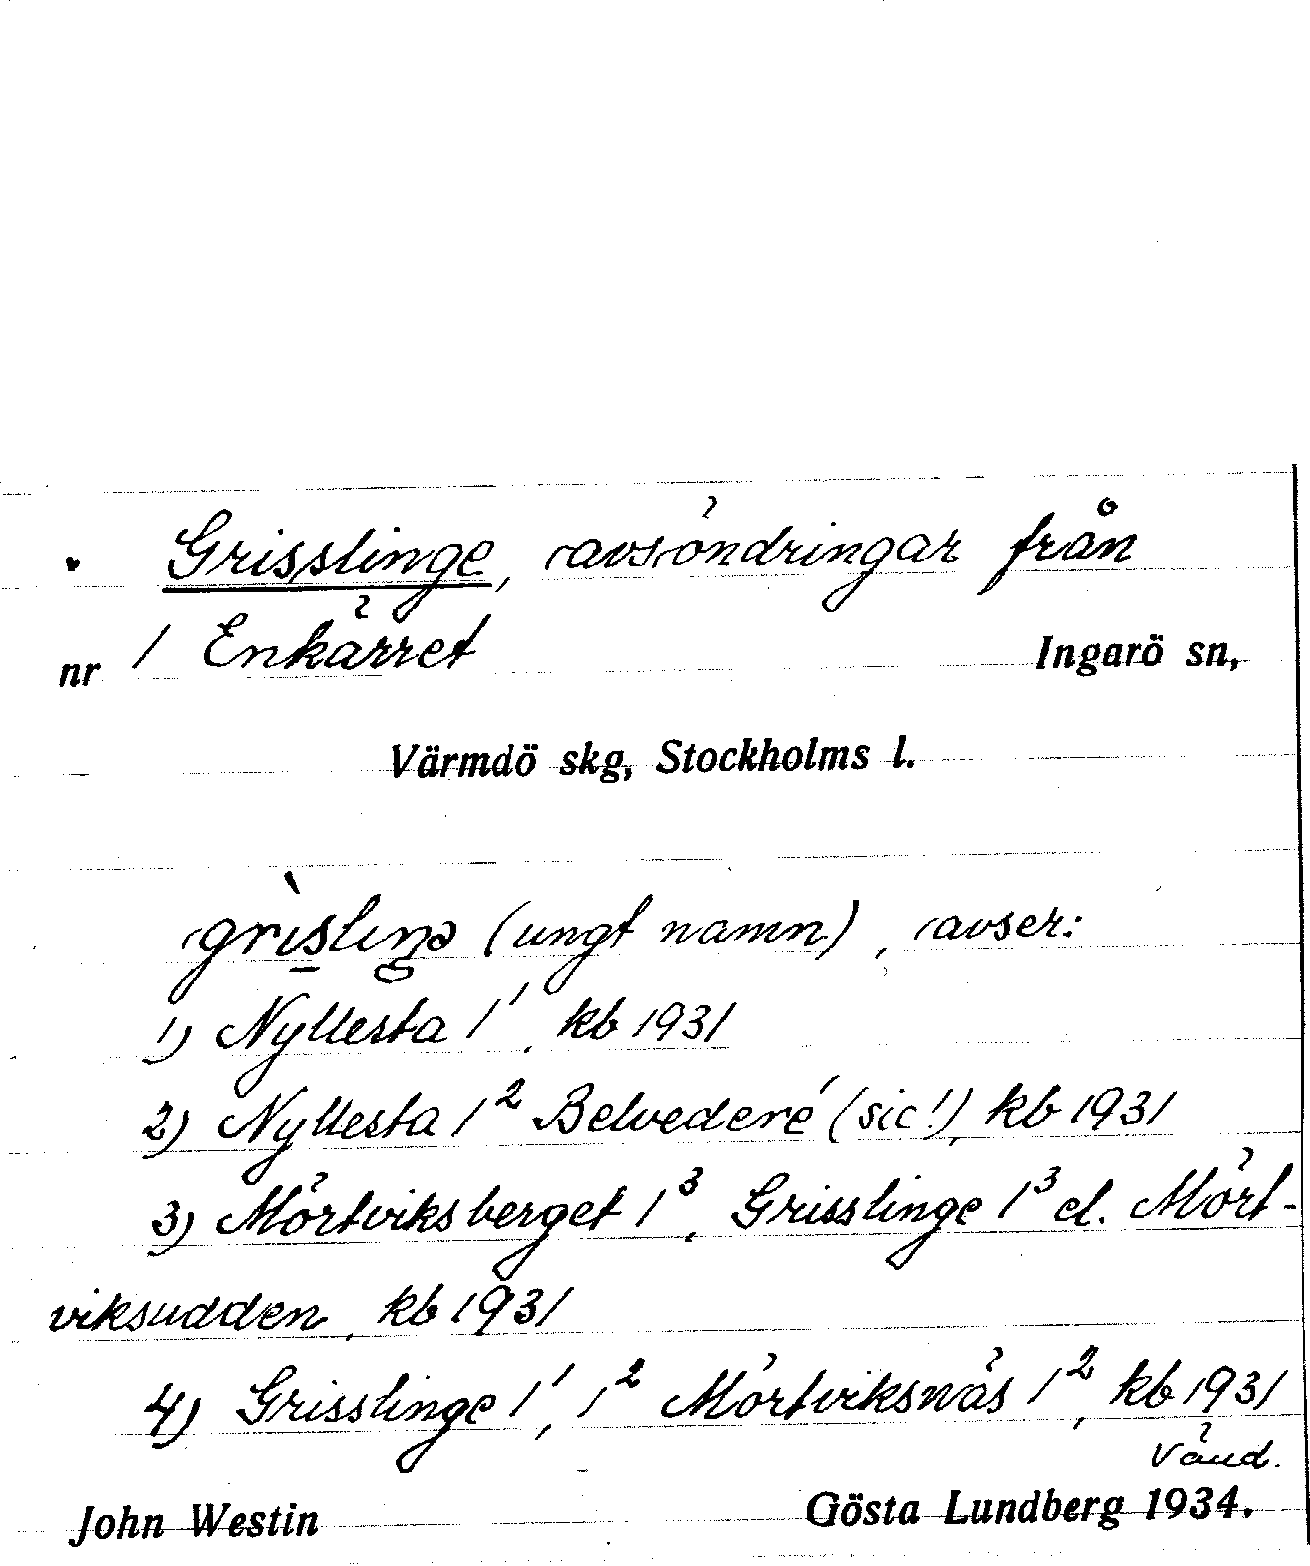 Grisslinge, avsöndringar från
nr 1 Enkärret Ingarö sn,
Värmdö skg, Stockholms l.
grìsliŋə (ungt namn), avser:
1) Nyllesta 1¹, kb 1931
2) Nyllesta 1² Belvederé (sic!), kb 1931
3) Mörtviksberget 1³, Grisslinge 1³ el. Mört-
viksudden, kb 1931
4) Grisslinge 1¹, 1² Mörtviksnäs 1², kb 1931
Vänd.
John Westin Gösta Lundberg 1934.